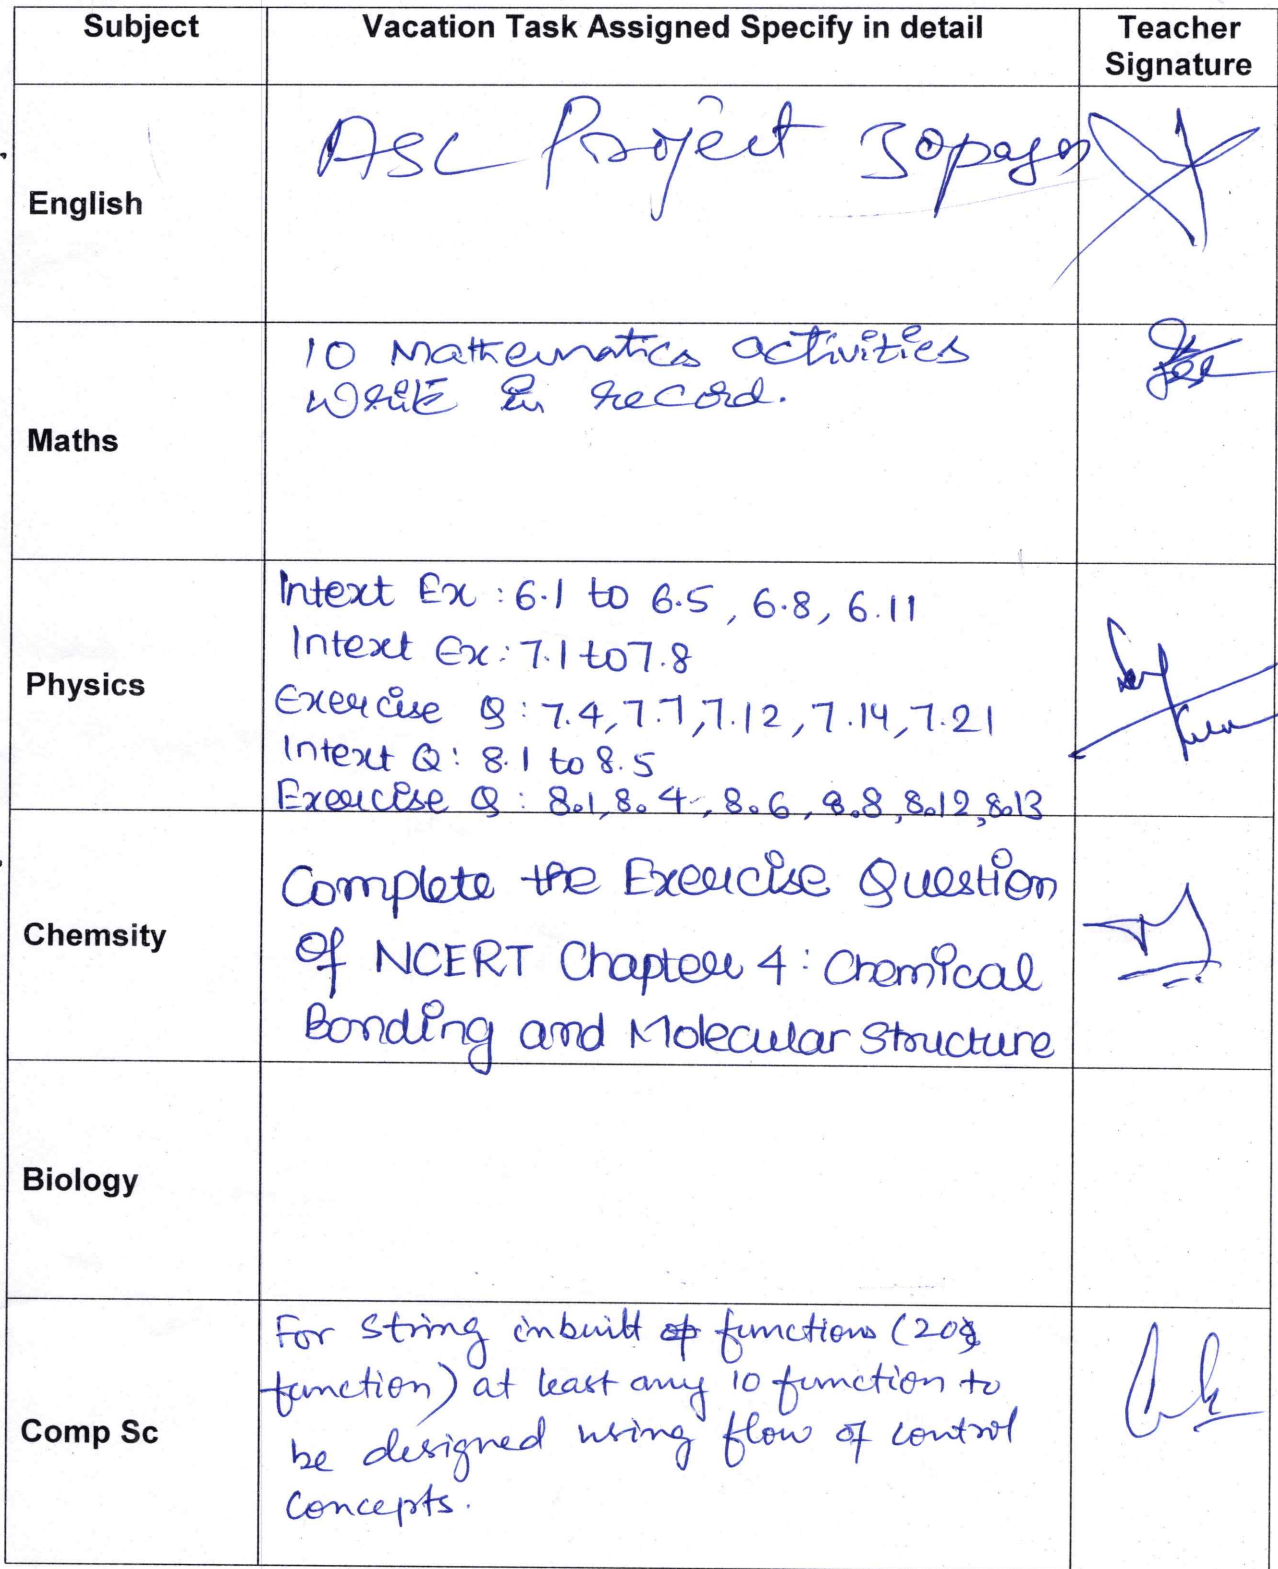 Subject
Vacation Task Assigned Specify in detail
Teacher
Signature
English
ASL Project 30 pages
Maths
10 Mathematics activities
write in record.
Physics
Intext Ex : 6.1 to 6.5, 6.8, 6.11
Intext Ex : 7.1 to 7.8
Exercise Q : 7.4, 7.7, 7.12, 7.14, 7.21
Intext Q : 8.1 to 8.5
Exercise Q : 8.1, 8.4, 8.6, 8.8, 8.12, 8.13
Chemsity
Complete the Exercise Question
of NCERT Chapter 4 : Chemical
Bonding and Molecular Structure
Biology
Comp Sc
For string inbuilt functions (20
function) at least any 10 function to
be designed using flow of control
concepts.